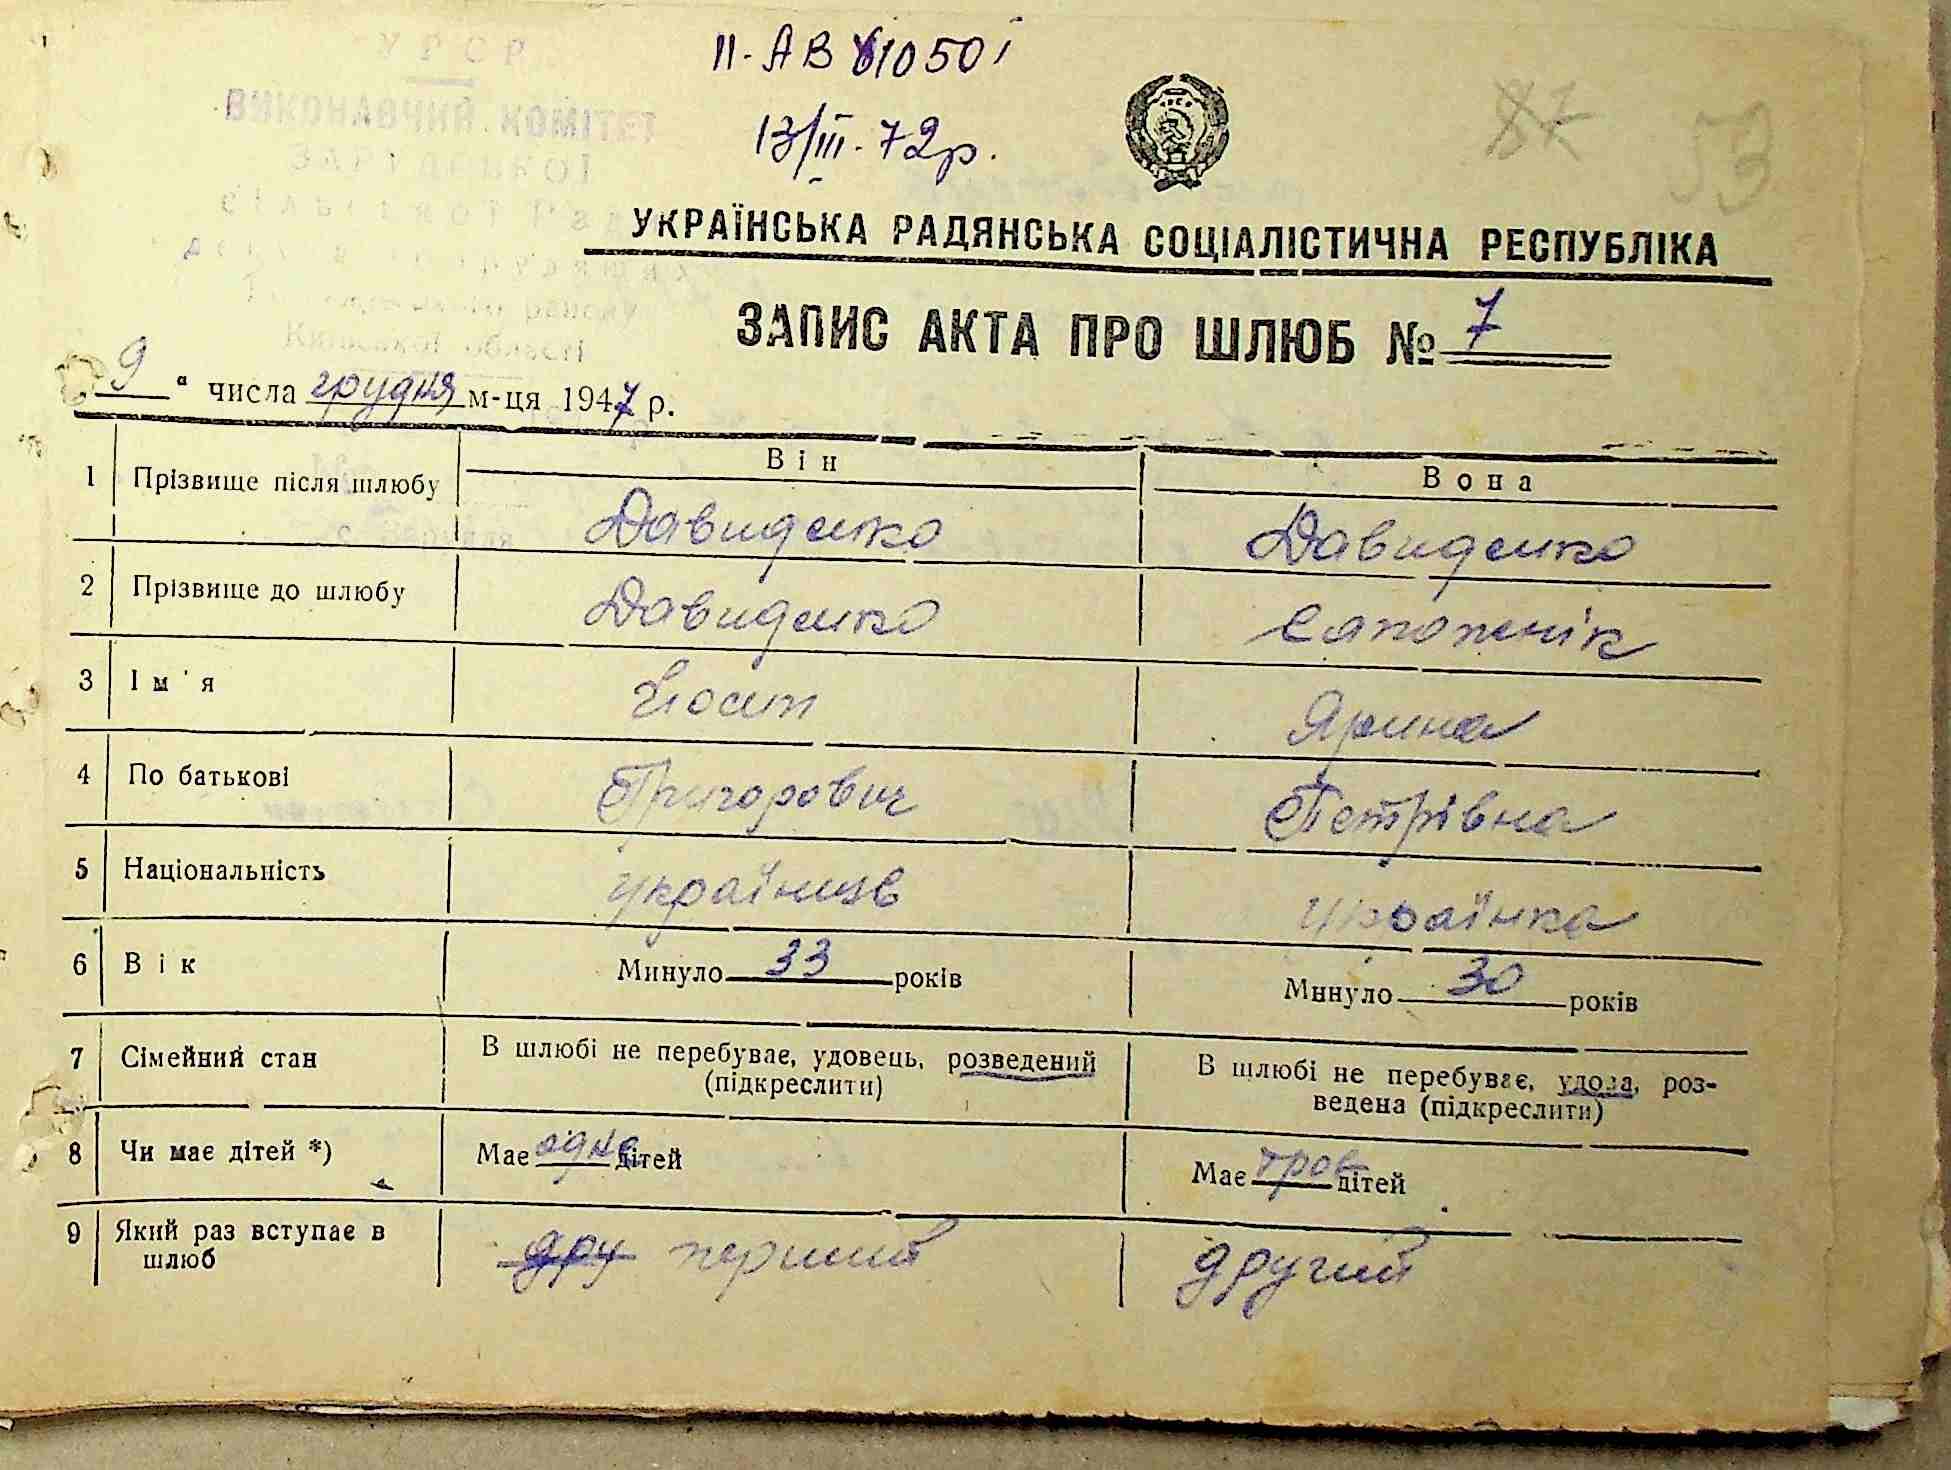 II-АВ 610501
13/III-72р.
87 53
УКРАЇНСЬКА РАДЯНСЬКА СОЦІАЛІСТИЧНА РЕСПУБЛІКА
ЗАПИС АКТА ПРО ШЛЮБ № 7
9 " числа грудня м-ця 1947 р.
Він Вона
1 Прізвище після шлюбу Давиденко Давиденко
2 Прізвище до шлюбу Давиденко Сапожнік
3 Ім'я Йосип Ярина
4 По батькові Григорович Петрівна
5 Національність українець українка
6 Вік Минуло 33 років Минуло 30 років
7 Сімейний стан В шлюбі не перебуває, удовець, розведений (підкреслити) В шлюбі не перебуває, удова, роз-
ведена (підкреслити)
8 Чи має дітей *) Має одне дітей Має троє дітей
9 Який раз вступає в шлюб дру перший другий
УРСР
ВИКОНАВЧИЙ КОМІТЕТ
Київської області